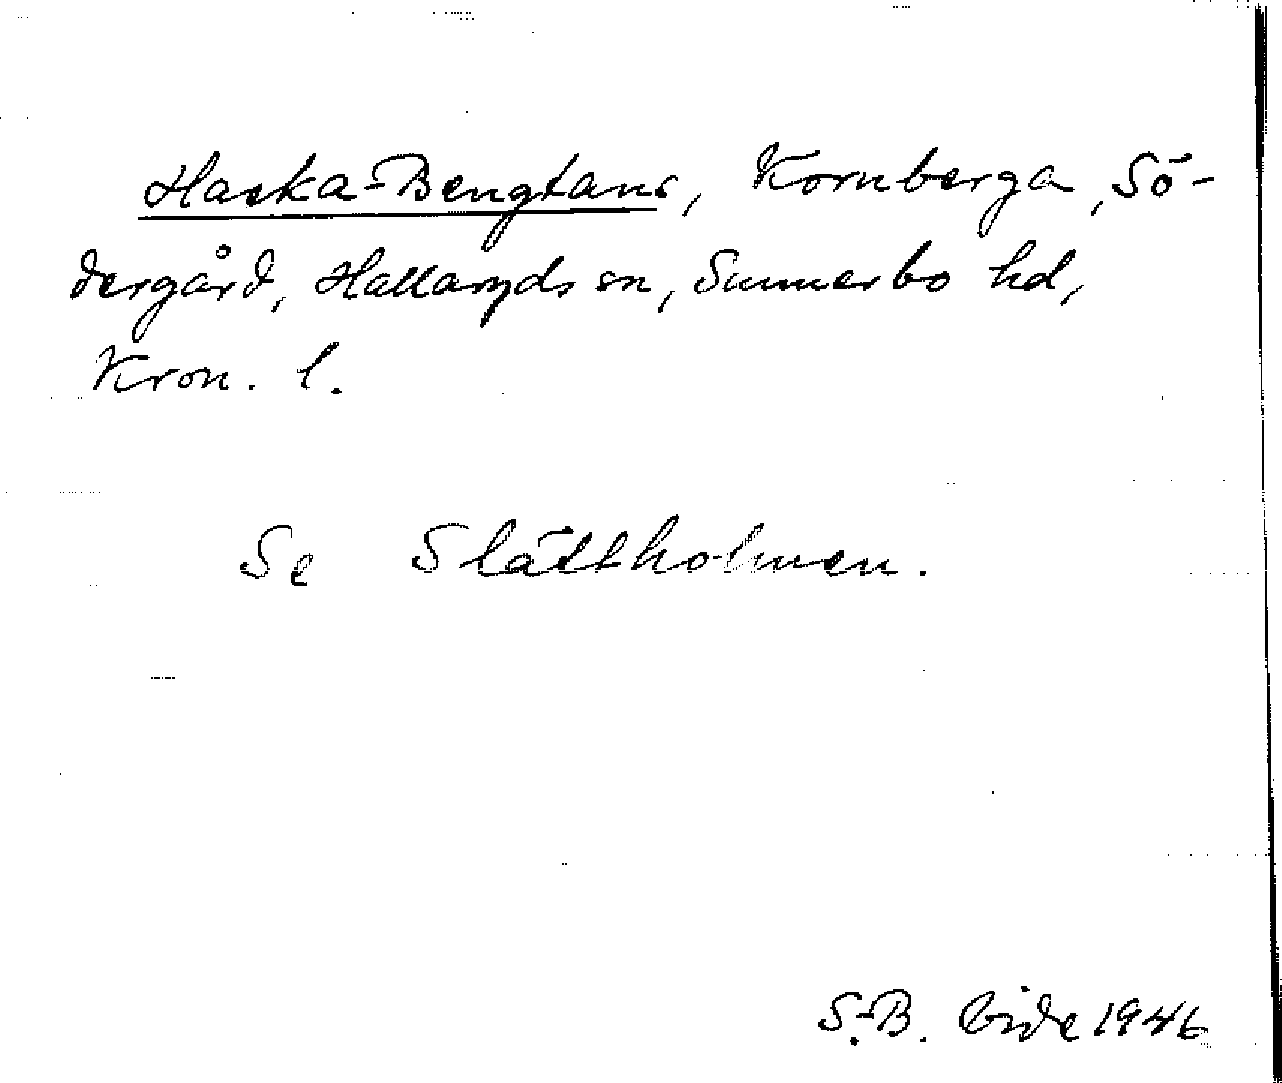 Haska-Bengtans, Kornberga, Sö-
dergård, Hallaryds sn, Sunnerbo hd,
Kron. l.
Se Slättholmen.
S.-B. 1946